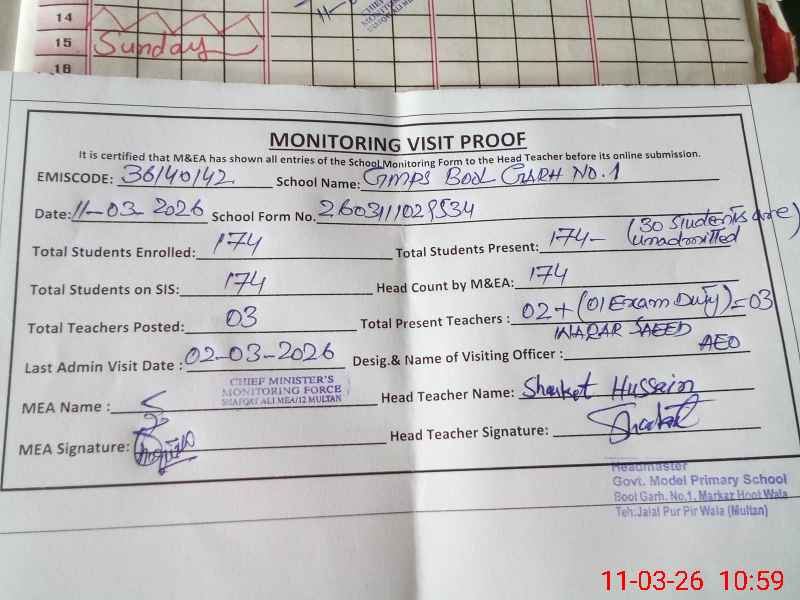 14
15 Sunday
16
MONITORING VISIT PROOF
It is certified that M&EA has shown all entries of the School Monitoring Form to the Head Teacher before its online submission.
EMISCODE: 36140142 School Name: GMPS BOOL GARH NO.1
Date: 11-03-2026 School Form No. 2603111029534
Total Students Enrolled: 174 Total Students Present: 174- (30 Students are unadmitted)
Total Students on SIS: 174 Head Count by M&EA: 174
Total Teachers Posted: 03 Total Present Teachers : 02+(01 Exam Duty)=03
Last Admin Visit Date : 02-03-2026 Desig.& Name of Visiting Officer : WAQAR SAEED AEO
MEA Name : CHIEF MINISTER'S Head Teacher Name: Shaukat Hussain
MONITORING FORCE
SHAFQAT ALI MEA/12 MULTAN
MEA Signature: Head Teacher Signature:
Headmaster
Govt. Model Primary School
Bool Garh. No.1, Markaz Hoot Wala
Teh:Jalal Pur Pir Wala (Multan)
11-03-26 10:59